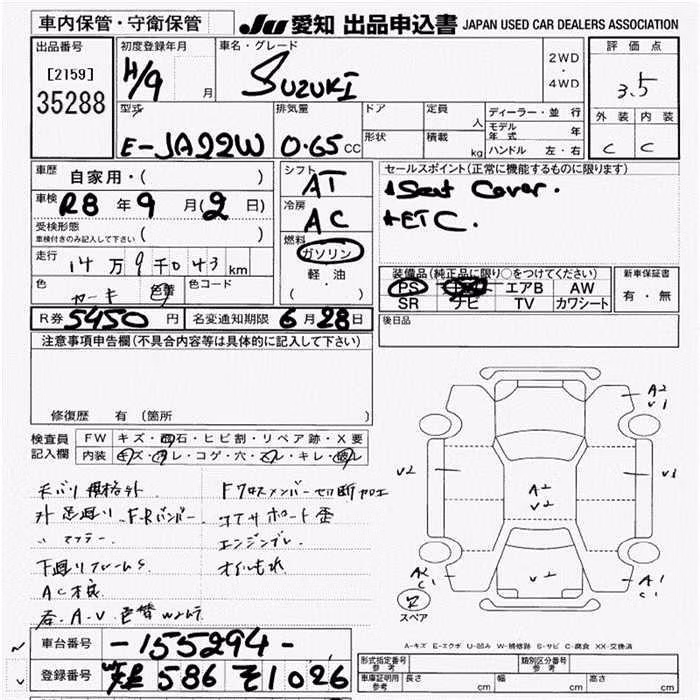 車内保管・守衛保管
JU 愛知 出品申込書 JAPAN USED CAR DEALERS ASSOCIATION
出品番号
[2159]
35288
初度登録年月
H/9 月
車名・グレード
SUZUKI
2WD
・
4WD
評価点
3.5
外装 内装
C C
型式
E-JA22W
排気量
0.65 CC
ドア
形状
定員 人
積載 kg
ディーラー・並行
モデル年式 年
ハンドル 左・右
車歴 自家用・( )
車検 R8 年 9 月(2 日)
受検形態
車検付きのみ記入して下さい ( )
走行 14万9千043 km
色 色替 色コード
シフト
AT
冷房
AC
燃料
ガソリン
軽油
( )
セールスポイント(正常に機能するものに限ります)
Seat Cover.
ETC.
装備品(純正品に限り○をつけてください)
PS エアB AW
SR ナビ TV カワシート
新車保証書
有・無
R券 5450 円 名変通知期限 6月28日
後日品
注意事項申告欄(不具合内容等は具体的に記入して下さい)
修復歴 有 (箇所 )
検査員記入欄
FW キズ・飛石・ヒビ割・リペア跡・X要
内装 キズ・汚レ・コゲ・穴・スレ・キレ・破レ
規格外
外 足廻り F.Rバンパー
〃 マフラー
下廻りフレームS
Fクロスメンバー切断加工
コアサポート歪
エンジンブレ
オイルもれ
A2
V1
V2
V1
A2
V2
V1
A2
C1
A1
C1
スペア
A-キズ E-エクボ U-凹み W-補修跡 S-サビ C-腐食 XX-交換済
車台番号 -155294-
登録番号 586 そ1026
形式指定番号 参考
類別区分番号 参考
車庫証明用 参考
長さ cm 幅 cm 高さ cm